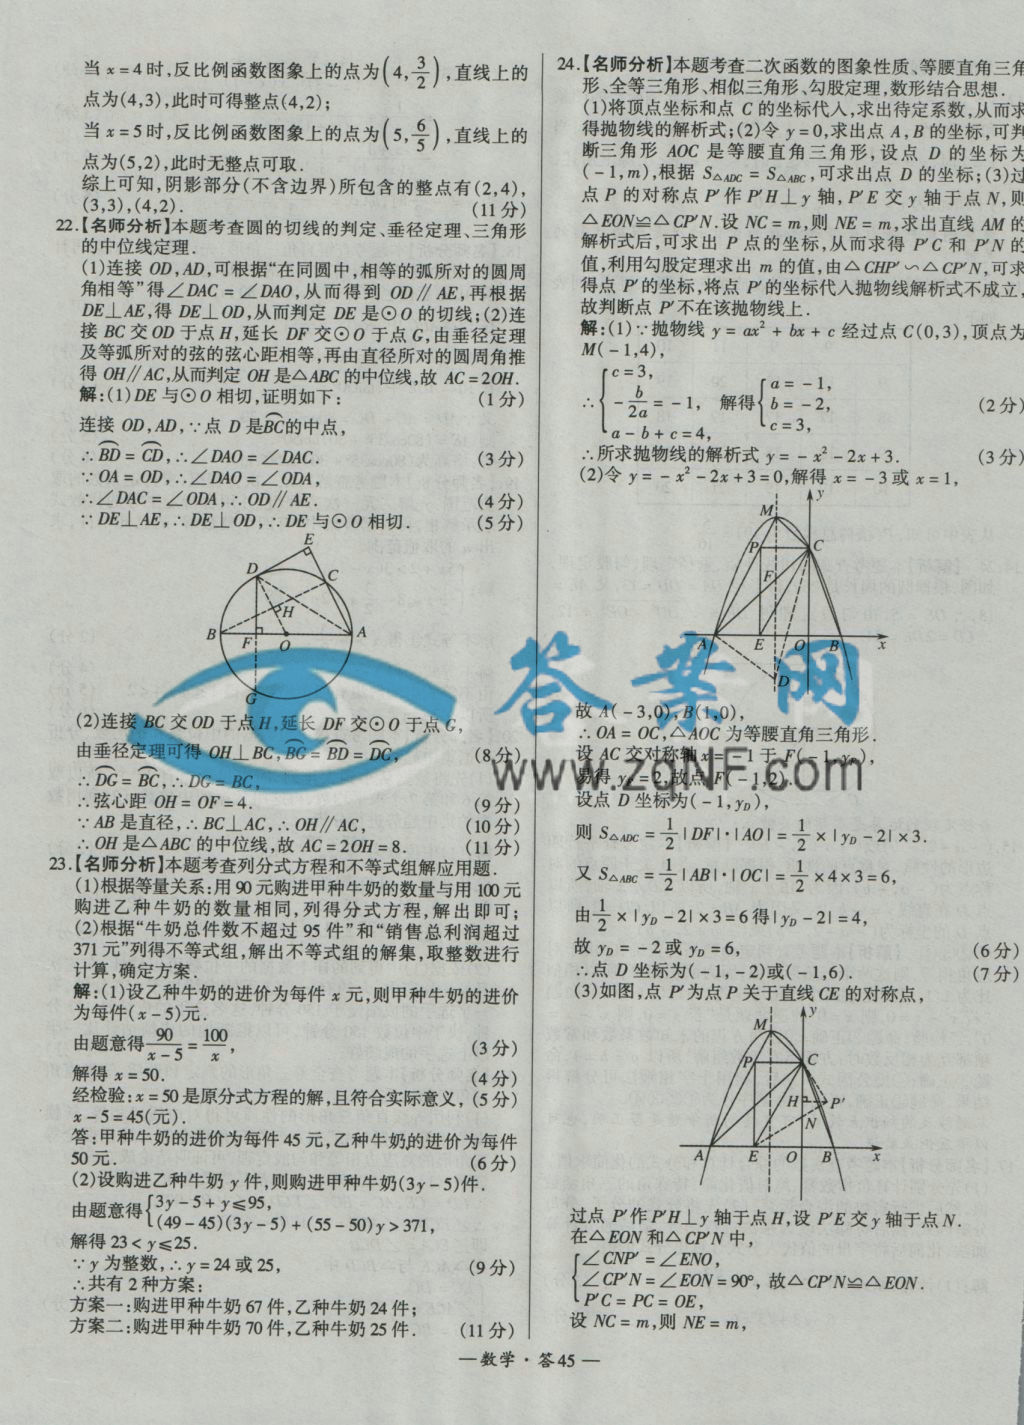 当 x = 4 时,反比例函数图象上的点为(4, 3/2),直线上的
点为(4,3),此时可得整点(4,2);
当 x = 5 时,反比例函数图象上的点为(5, 6/5),直线上的
点为(5,2),此时无整点可取.
综上可知,阴影部分(不含边界)所包含的整点有(2,4),
(3,3),(4,2). (11 分)
22.【名师分析】本题考查圆的切线的判定、垂径定理、三角形
的中位线定理.
(1)连接 OD,AD,可根据“在同圆中,相等的弧所对的圆周
角相等”得∠DAC = ∠DAO,从而得到 OD∥AE,再根据
DE⊥AE,得 DE⊥OD,从而判定 DE 是⊙O 的切线;(2)连
接 BC 交 OD 于点 H,延长 DF 交⊙O 于点 G,由垂径定理
及等弧所对的弦的弦心距相等,再由直径所对的圆周角推
得 OH∥AC,从而判定 OH 是△ABC 的中位线,故 AC = 2OH.
解:(1)DE 与⊙O 相切,证明如下: (1 分)
连接 OD,AD,∵点 D 是⌒BC的中点,
∴⌒BD = ⌒CD,∴∠DAO = ∠DAC. (3 分)
∵OA = OD,∴∠DAO = ∠ODA,
∴∠DAC = ∠ODA,∴OD∥AE. (4 分)
∵DE⊥AE,∴DE⊥OD,∴DE 与⊙O 相切. (5 分)
E
D
C
H
B
F
O
A
G
(2)连接 BC 交 OD 于点 H,延长 DF 交⊙O 于点 G,
由垂径定理可得 OH⊥BC,⌒BG = ⌒BD = ⌒DC, (8 分)
∴⌒DG = ⌒BC,∴DG = BC,
∴弦心距 OH = OF = 4. (9 分)
∵AB 是直径,∴BC⊥AC,∴OH∥AC, (10 分)
∴OH 是△ABC 的中位线,故 AC = 2OH = 8. (11 分)
23.【名师分析】本题考查列分式方程和不等式组解应用题.
(1)根据等量关系:用 90 元购进甲种牛奶的数量与用 100 元
购进乙种牛奶的数量相同,列得分式方程,解出即可;
(2)根据“牛奶总件数不超过 95 件”和“销售总利润超过
371 元”列得不等式组,解出不等式组的解集,取整数进行
计算,确定方案.
解:(1)设乙种牛奶的进价为每件 x 元,则甲种牛奶的进价
为每件(x - 5)元.
由题意得 90/(x - 5) = 100/x, (3 分)
解得 x = 50. (4 分)
经检验:x = 50 是原分式方程的解,且符合实际意义, (5 分)
x - 5 = 45(元).
答:甲种牛奶的进价为每件 45 元,乙种牛奶的进价为每件
50 元. (6 分)
(2)设购进乙种牛奶 y 件,则购进甲种牛奶(3y - 5)件.
由题意得{3y - 5 + y ≤ 95,
(49 - 45)(3y - 5) + (55 - 50)y > 371,
解得 23 < y ≤ 25.
∵y 为整数,∴y = 24 或 25, (9 分)
∴共有 2 种方案:
方案一:购进甲种牛奶 67 件,乙种牛奶 24 件;
方案二:购进甲种牛奶 70 件,乙种牛奶 25 件. (11 分)
24.【名师分析】本题考查二次函数的图象性质、等腰直角三角
形、全等三角形、相似三角形、勾股定理,数形结合思想.
(1)将顶点坐标和点 C 的坐标代入,求出待定系数,从而求
得抛物线的解析式;(2)令 y = 0,求出点 A,B 的坐标,可判
断三角形 AOC 是等腰直角三角形,设点 D 的坐标为
(-1,m),根据 S△ADC = S△ABC,可求出点 D 的坐标;(3)过
点 P 的对称点 P′作 P′H⊥y 轴,P′E 交 y 轴于点 N,则
△EON≌△CP′N.设 NC = m,则 NE = m,求出直线 AM 的
解析式后,可求出 P 点的坐标,从而求得 P′C 和 P′N 的
值,利用勾股定理求出 m 的值,由△CHP′∽△CP′N,可求
得点 P′的坐标,将点 P′的坐标代入抛物线解析式不成立,
故判断点 P′不在该抛物线上.
解:(1)∵抛物线 y = ax² + bx + c 经过点 C(0,3),顶点为
M(-1,4),
∴{c = 3, -b/2a = -1, a - b + c = 4, 解得{a = -1, b = -2, c = 3, (2 分)
∴所求抛物线的解析式 y = -x² - 2x + 3. (3 分)
(2)令 y = -x² - 2x + 3 = 0,解得 x = -3 或 x = 1,
y
M
P
C
F
A
E
O
B
x
D
故 A(-3,0),B(1,0),
∴OA = OC,△AOC 为等腰直角三角形.
设 AC 交对称轴 x = -1 于 F(-1,yF),
易得 yF = 2,故点 F(-1,2).
设点 D 坐标为(-1,yD),
则 S△ADC = 1/2|DF|·|AO| = 1/2 × |yD - 2| × 3.
又 S△ABC = 1/2|AB|·|OC| = 1/2 × 4 × 3 = 6,
由 1/2 × |yD - 2| × 3 = 6 得|yD - 2| = 4,
故 yD = -2 或 yD = 6, (6 分)
∴点 D 坐标为(-1,-2)或(-1,6). (7 分)
(3)如图,点 P′为点 P 关于直线 CE 的对称点,
y
M
P
C
H
P′
N
A
E
O
B
x
过点 P′作 P′H⊥y 轴于点 H,设 P′E 交 y 轴于点 N.
在△EON 和△CP′N 中,
{∠CNP′ = ∠ENO,
∠CP′N = ∠EON = 90°, 故△CP′N≌△EON.
P′C = PC = OE,
设 NC = m,则 NE = m,
答案网
www.zqNF.com
— 数学·答 45 —